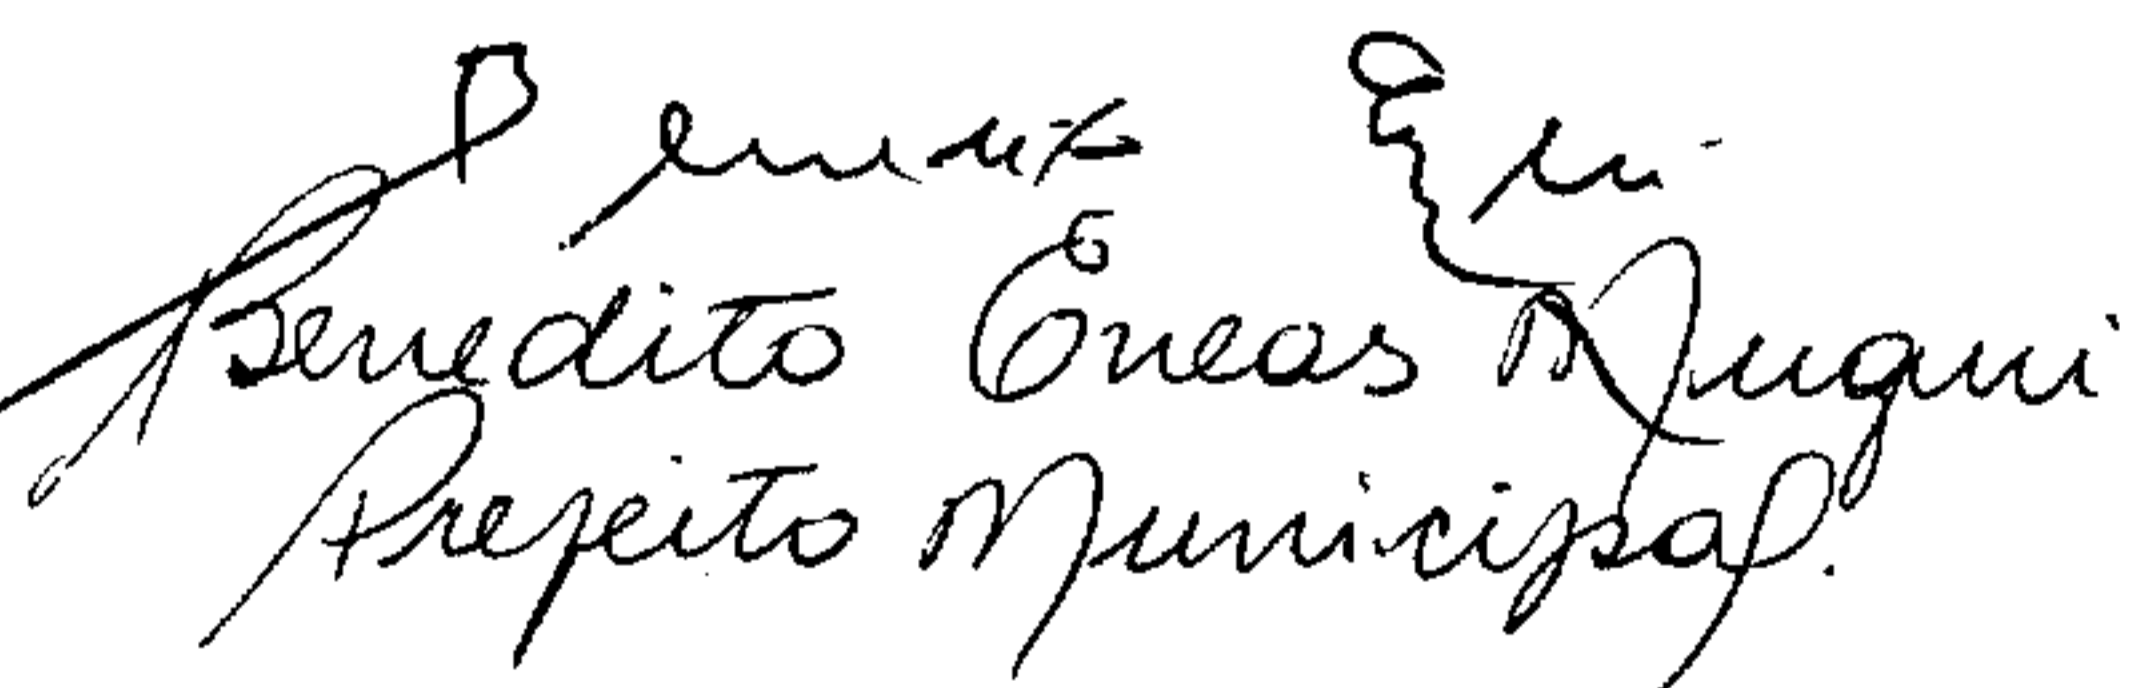 Benedito Enéas Muqui
Prefeito Municipal.